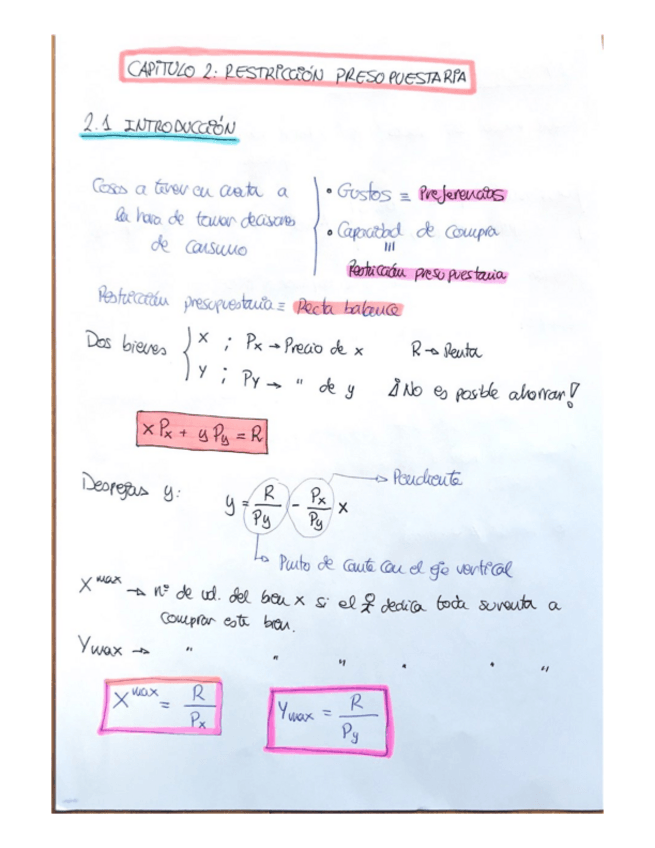 CAPÍTULO 2: RESTRICCIÓN PRESUPUESTARIA
2.1 INTRODUCCIÓN
Cosas a tener en cuenta a
la hora de tomar decisiones
de consumo
• Gustos ≡ Preferencias
• Capacidad de compra
≡
Restricción presupuestaria
Restricción presupuestaria ≡ Recta balance
Dos bienes { x ; Px → Precio de x R → Renta
y ; Py → " de y ¡No es posible ahorrar!
x Px + y Py = R
Despejas y: y = R/Py - Px/Py x → Pendiente
↳ Punto de corte con el eje vertical
X^max → nº de ud. del bien x si el dedica toda su renta a
comprar este bien.
Ymax → " " " " " "
X^max = R/Px Ymax = R/Py